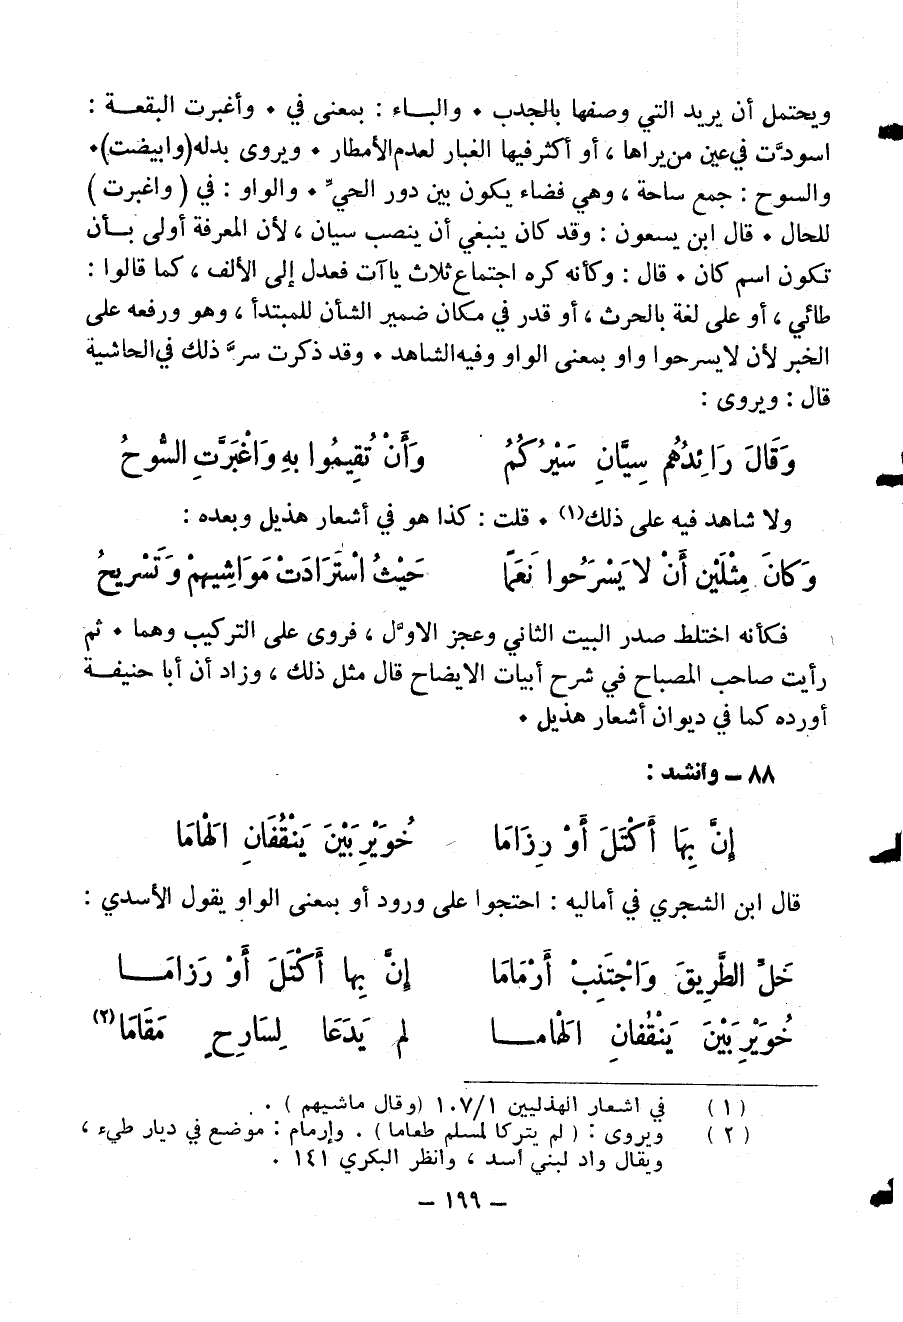 ويحتمل أن يريد التي وصفها بالجدب ٠ والبـاء : بمعنى في ٠ وأغبرت البقعـة :
اسودَّت في عين من يراها ، أو أكثر فيها الغبار لعدم الأمطار ٠ ويروى بدله (وابيضت)٠
والسوح : جمع ساحة ، وهي فضاء يكون بين دور الحيّ ٠ والواو : في ( واغبرت )
للحال ٠ قال ابن يسعون : وقد كان ينبغي أن ينصب سيان ، لأن المعرفة أولى بـأن
تكون اسم كان ٠ قال : وكأنه كره اجتماع ثلاث ياآت فعدل إلى الألف ، كما قالوا :
طائي ، أو على لغة بالحرث ، أو قدر في مكان ضمير الشأن للمبتدأ ، وهو ورفعه على
الخبر لأن لا يسرحوا واو بمعنى الواو وفيه الشاهد ٠ وقد ذكرت سرَّ ذلك في الحاشية
قال : ويروى :
وَقَالَ رَائِدُهُم سِيَّانِ سَيْرُكُمُ وَأَنْ تُقِيمُوا بهِ وَاغْبَرَّتِ السُّوحُ
ولا شاهد فيه على ذلك(١) ٠ قلت : كذا هو في أشعار هذيل وبعده :
وَكانَ مِثْلَيْنِ أَنْ لا يَسْرَحُوا نَعَمًا حَيْثُ اسْتَرَادَتْ مَوَاشِيهِمْ وَتَسْرِيحُ
فكأنه اختلط صدر البيت الثاني وعجز الاوَّل ، فروى على التركيب وهما ٠ ثم
رأيت صاحب المصباح في شرح أبيات الايضاح قال مثل ذلك ، وزاد أن أبا حنيفـة
أورده كما في ديوان أشعار هذيل ٠
٨٨ ـ وأنشد :
إنَّ بِهَا أَكْتَلَ أَوْ رِزَامَا خُوَيْرِبَيْنَ يَنْقُفَانِ الهَامَا
قال ابن الشجري في أماليه : احتجوا على ورود أو بمعنى الواو يقول الأسدي :
خَلِّ الطَّرِيقَ وَاجْتَنِبْ أرْمَامَا إنَّ بِها أَكْتَلَ أَوْ رَزامَـــا
خُوَيْرِبَيْنَ يَنْقُفانِ الهَامـــا لم يَدَعَا لِسَارِحٍ مَقَامَا(٢)
(١) في اشعار الهذليين ١٠٧/١ (وقال ماشيهم ) .
(٢) ويروى : ( لم يتركا لمسلم طعاما ) . وإرمام : موضع في ديار طيء ،
ويقال واد لبني أسد ، وانظر البكري ١٤١ .
– ١٩٩ –